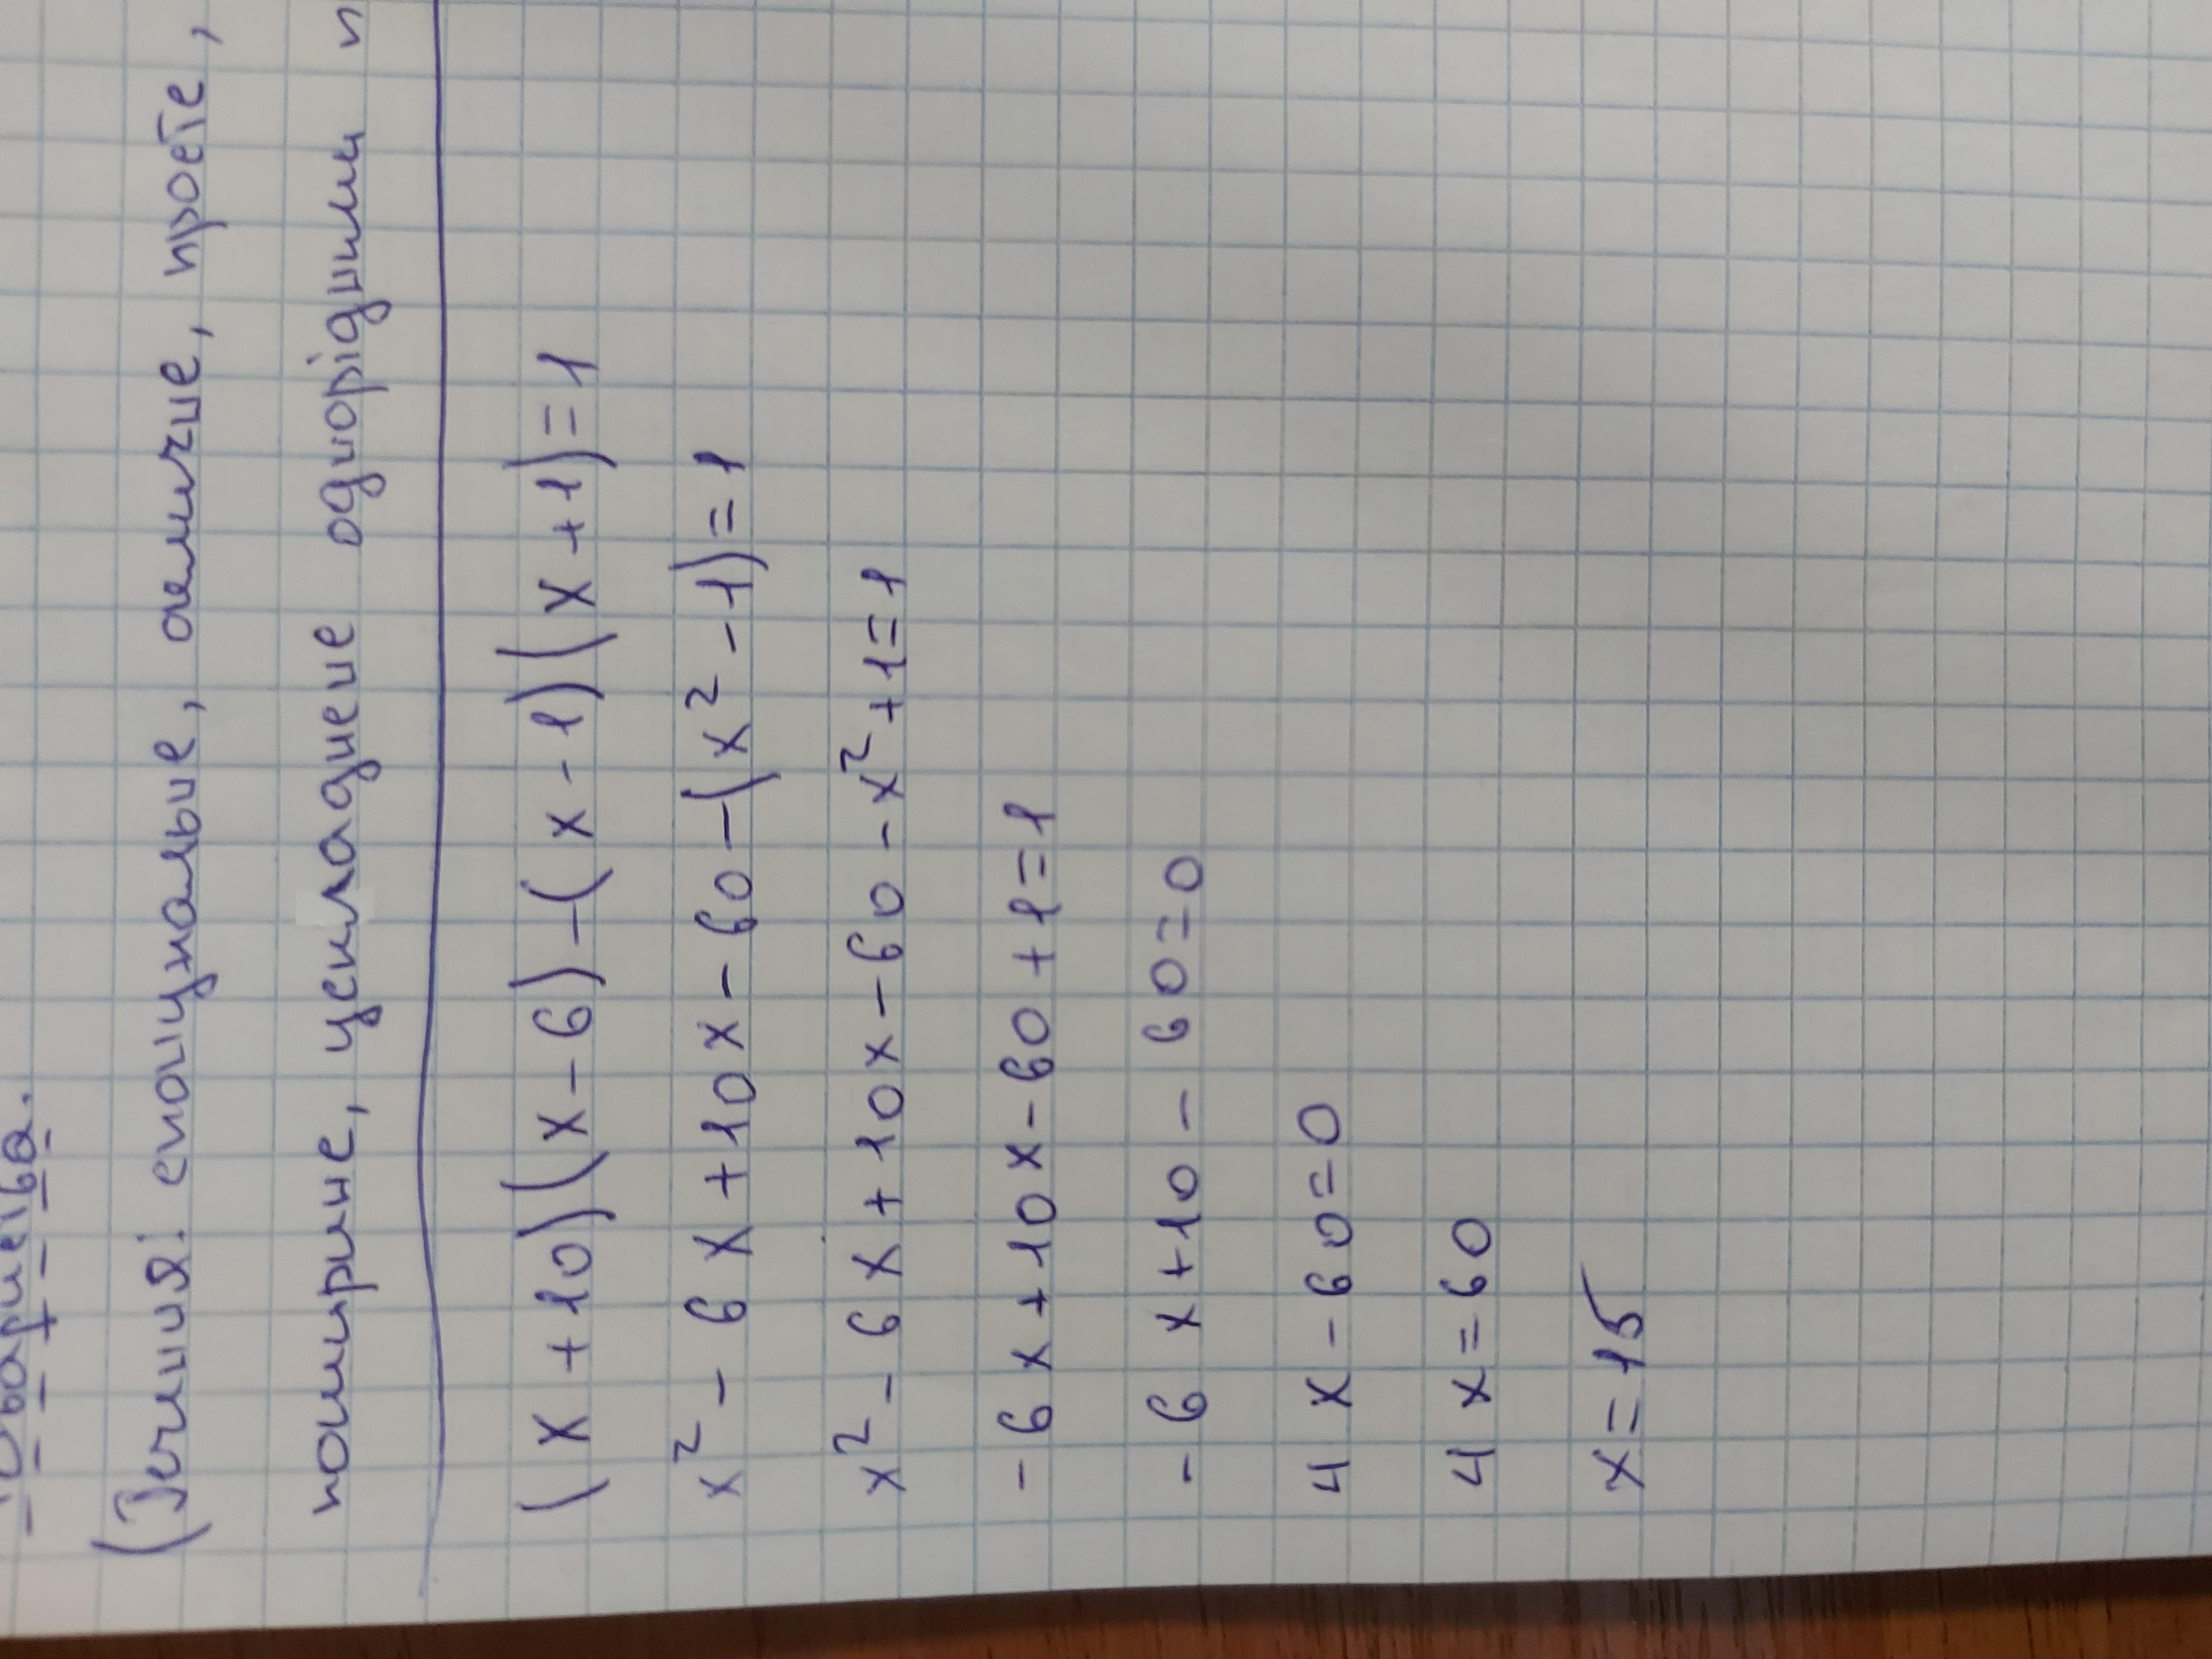 (Зечния: спонукальне, окличне, просте,
поширене, ускладнене однорідними
(x+10)(x-6)-(x-1)(x+1)=1
x²-6x+10x-60-(x²-1)=1
x²-6x+10x-60-x²+1=1
-6x+10x-60+1=1
-6x+10-60=0
4x-60=0
4x=60
x=15